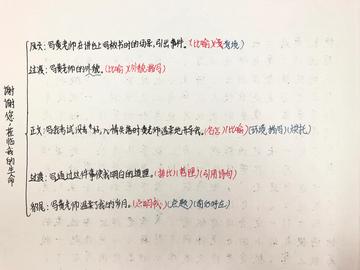 谢谢您,在临我的生命
开头：写黄老师在讲台上写板书时的场景,引出事件。(比喻)(环境)
过渡：写黄老师的外貌。(比喻)(外貌描写)
正文：写我考试没考好,心情失落时黄老师温柔地安慰我。(比喻)(环境描写)(烘托)
过渡：写通过这件事使我明白的道理。(排比)(哲理)(引用诗句)
结尾：写黄老师温柔了我的岁月。(点明我)(点题)(首尾呼应)